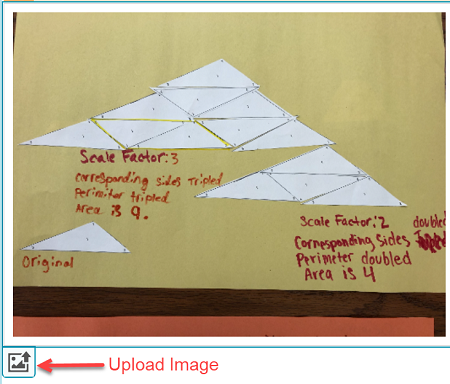 Scale Factor: 3
Corresponding sides Tripled
Perimiter tripled
Area is 9.
Original
Scale Factor: 2
Corresponding Sides doubled
Perimeter doubled
Area is 4
Upload Image